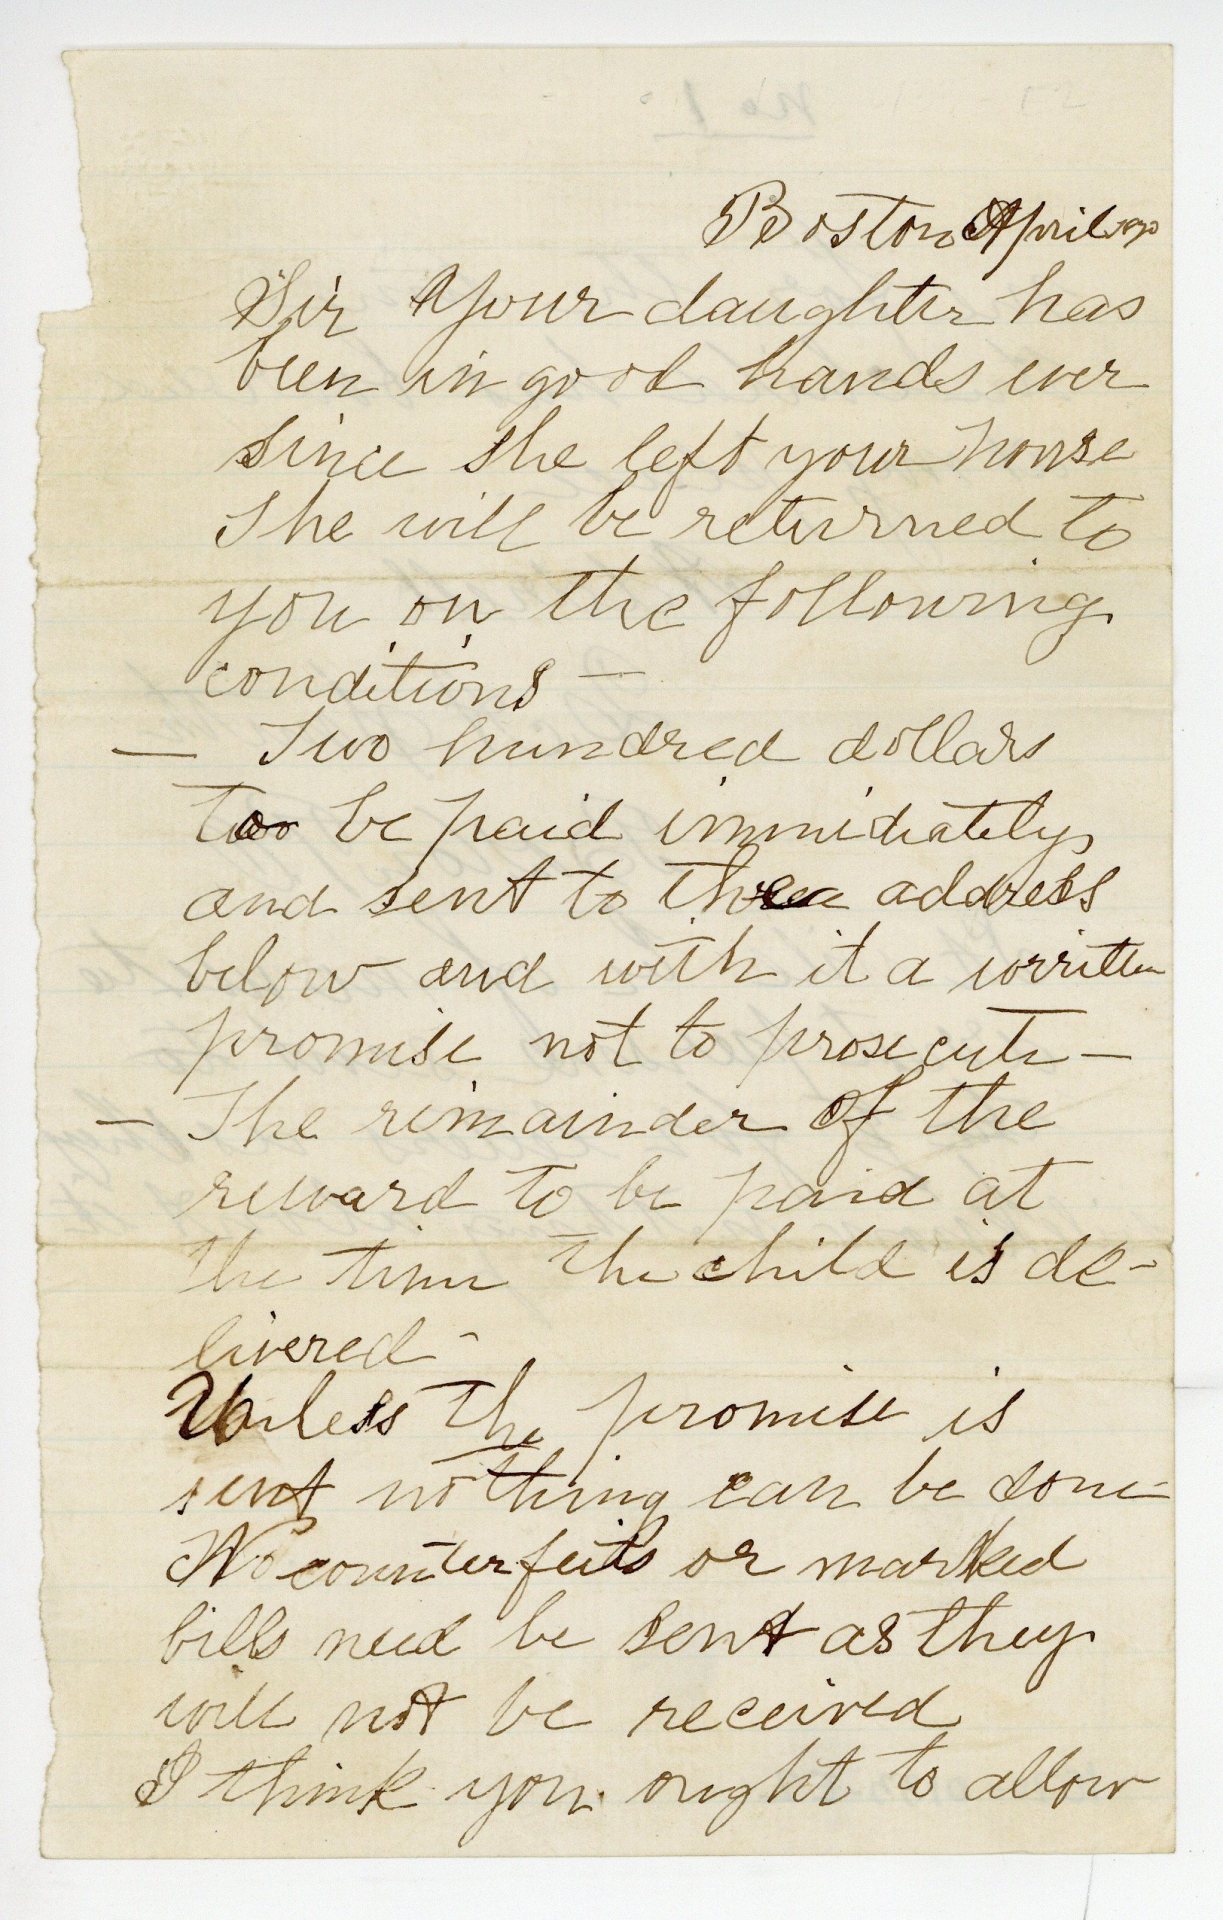 No 1.
Boston April 1890
Sir Your daughter has
been in good hands ever
since she left your house
She will be returned to
you on the following
conditions —
— Two hundred dollars
to be paid immidiately
and sent to the address
below and with it a written
promise not to prosecute —
— The remainder of the
reward to be paid at
the time the child is de-
livered -
Unless the promise is
sent nothing can be done
No counterfeits or marked
bills need be sent as they
will not be received
I think you ought to allow